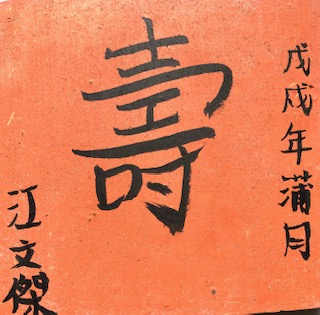 戊戌年蒲月
壽
江文傑